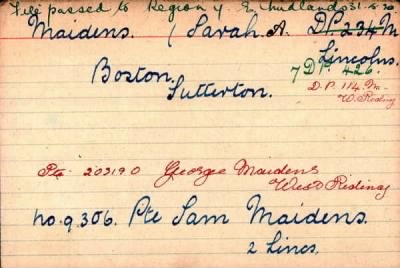 File passed to Region 4. E. Midlands 31.5.30
Maidens. / Sarah. A. D.P. 234 M
Lincolns.
Boston. 7 D.P. 426.
Sutterton. D.P. 114 M.
W. Riding
Pte 203190 George Maidens
West Riding
No. 9306. Pte Sam Maidens.
2 Lincs.